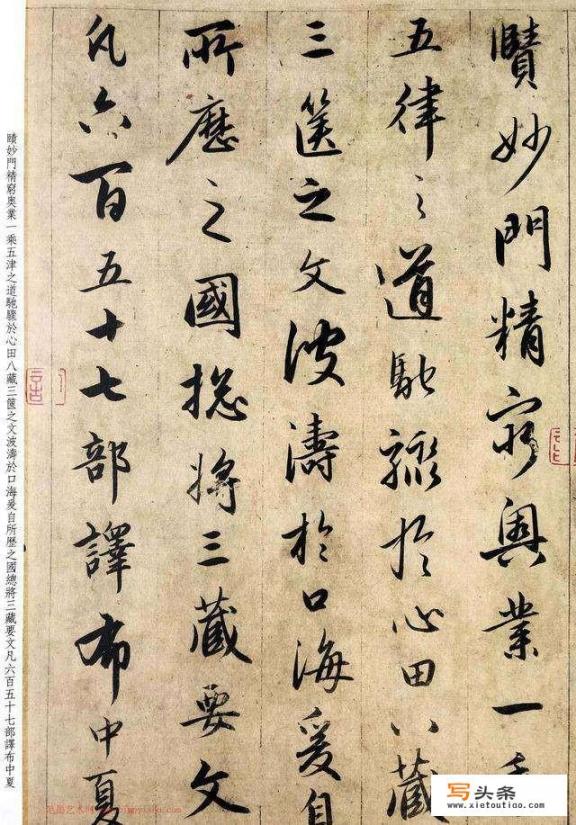 賾妙門精窮奥業一乘
五律之道馳驟於心田八藏
三篋之文波濤於口海爰自
所歷之國總將三藏要文
凡六百五十七部譯布中夏
賾妙門精窮奥業一乘五津之道馳驟於心田八藏三篋之文波濤於口海爰自所歷之國總將三藏要文凡六百五十七部譯布中夏
写头条
www.xietoutiao.com